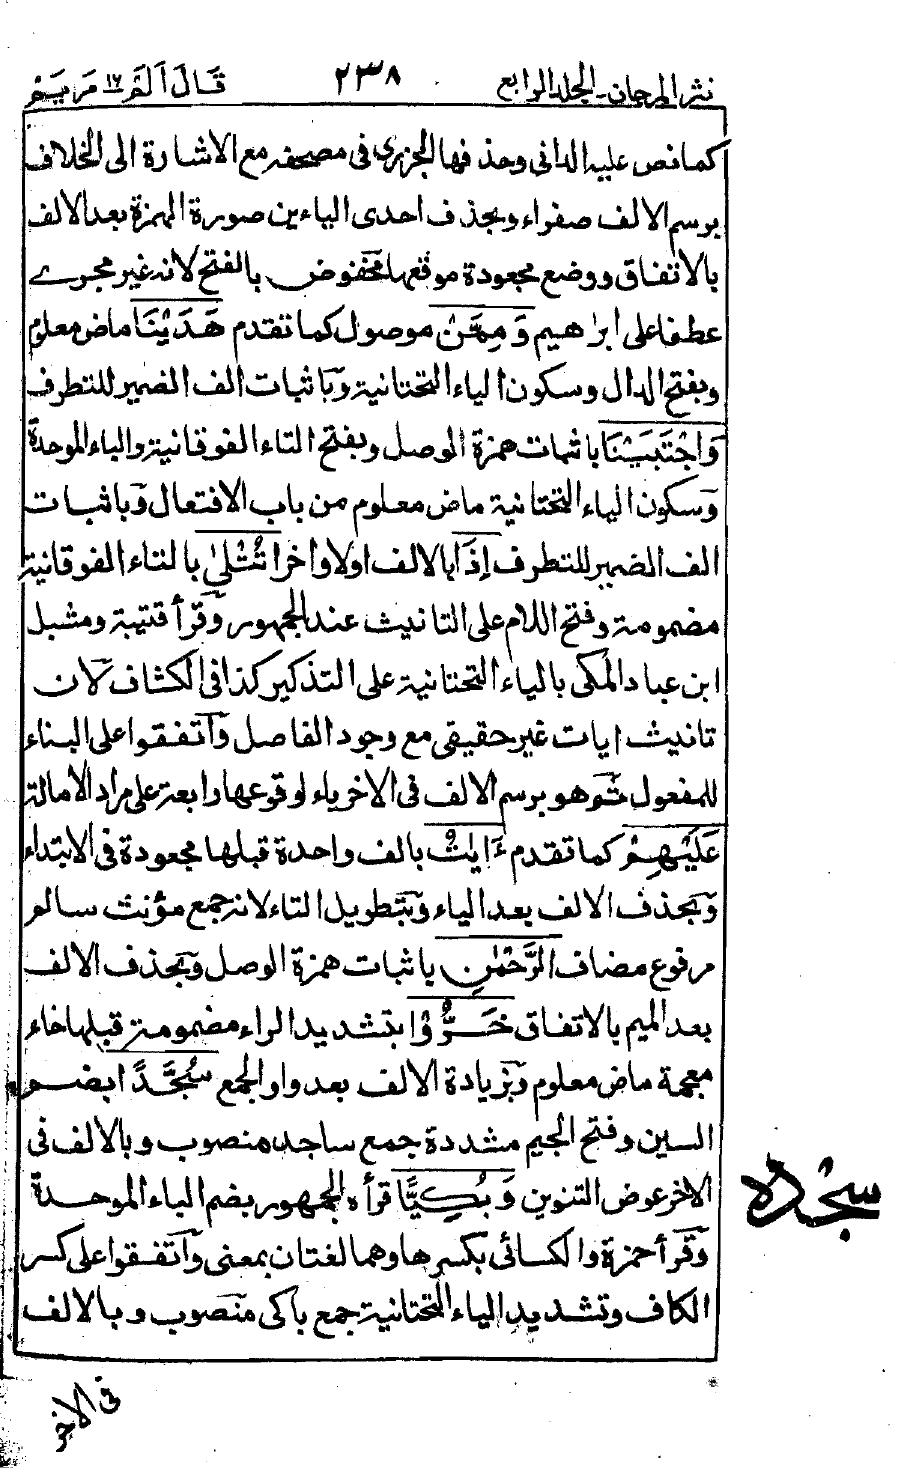 نثر المرجان - الجلد الرابع ٢٣٨ قَالَ اَلَمْ ١٦ مَرْيَمْ
كما نص عليه الدانى وحذفها الجزرى فى مصحفه مع الاشارة الى الخلاف
برسم الالف صفراء وبحذف احدى الياءين صورة الهمزة بعد الالف
بالاتفاق ووضع مجعودة موقعها مخفوض بالفتح لانه غير مجرے
عطفا على ابراهيم وَمِمَّنْ موصول كما تقدم هَدَيْنَا ماض معلوم
وبفتح الدال وسكون الياء التحتانية وباثبات الف الضمير للتطرف
وَاجْتَبَيْنَا باثبات همزة الوصل وبفتح التاء الفوقانية والباء الموحدة
وسكون الياء التحتانية ماض معلوم من باب الافتعال وباثبات
الف الضمير للتطرف إِذَا بالالف اولا واخرا تُتْلٰى بالتاء الفوقانية
مضمومة وفتح اللام على التانيث عند الجمهور وقرأ قتيبة وشبل
ابن عباد المكى بالياء التحتانية على التذكير كذا فى الكشاف لان
تانيث ايات غير حقيقى مع وجود الفاصل واتفقوا على البناء
للمفعول ثم هو برسم الالف فى الاخر ياء لوقوعها رابعة على مراد الامالة
عَلَيْهِمْ كما تقدم ءَايٰتُ بالف واحدة قبلها مجعودة فى الابتداء
وبحذف الالف بعد الياء وبتطويل التاء لانه جمع مؤنث سالم
مرفوع مضاف الرَّحْمٰنِ باثبات همزة الوصل وبحذف الالف
بعد الميم بالاتفاق خَرُّوْا بتشديد الراء مضمومة قبلها خاء
معجمة ماض معلوم وبزيادة الالف بعد واو الجمع سُجَّدًا بضم
السين وفتح الجيم مشددة جمع ساجد منصوب وبالالف فى
الاخر عوض التنوين وَبُكِيًّا قرأه الجمهور بضم الباء الموحدة
وقرأ حمزة والكسائى بكسرها وهما لغتان بمعنى واتفقوا على كسر
الكاف وتشديد الياء التحتانية جمع باكى منصوب وبالالف
سجده
فى الاخر